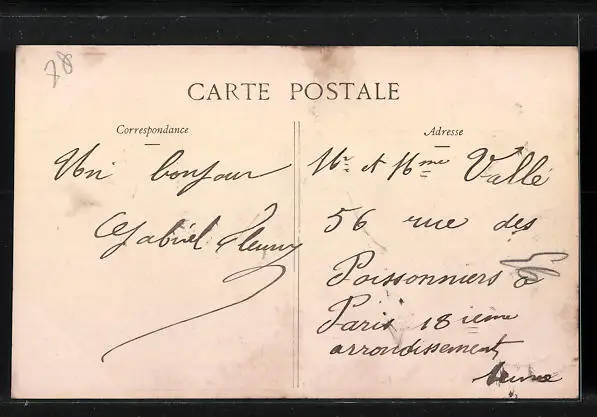 78
CARTE POSTALE
Correspondance
Un bonjour
Gabriel Fleury
Adresse
Mr et Mme Vallé
56 rue des
Poissonniers à
Paris 18ième
arrondissement
Seine